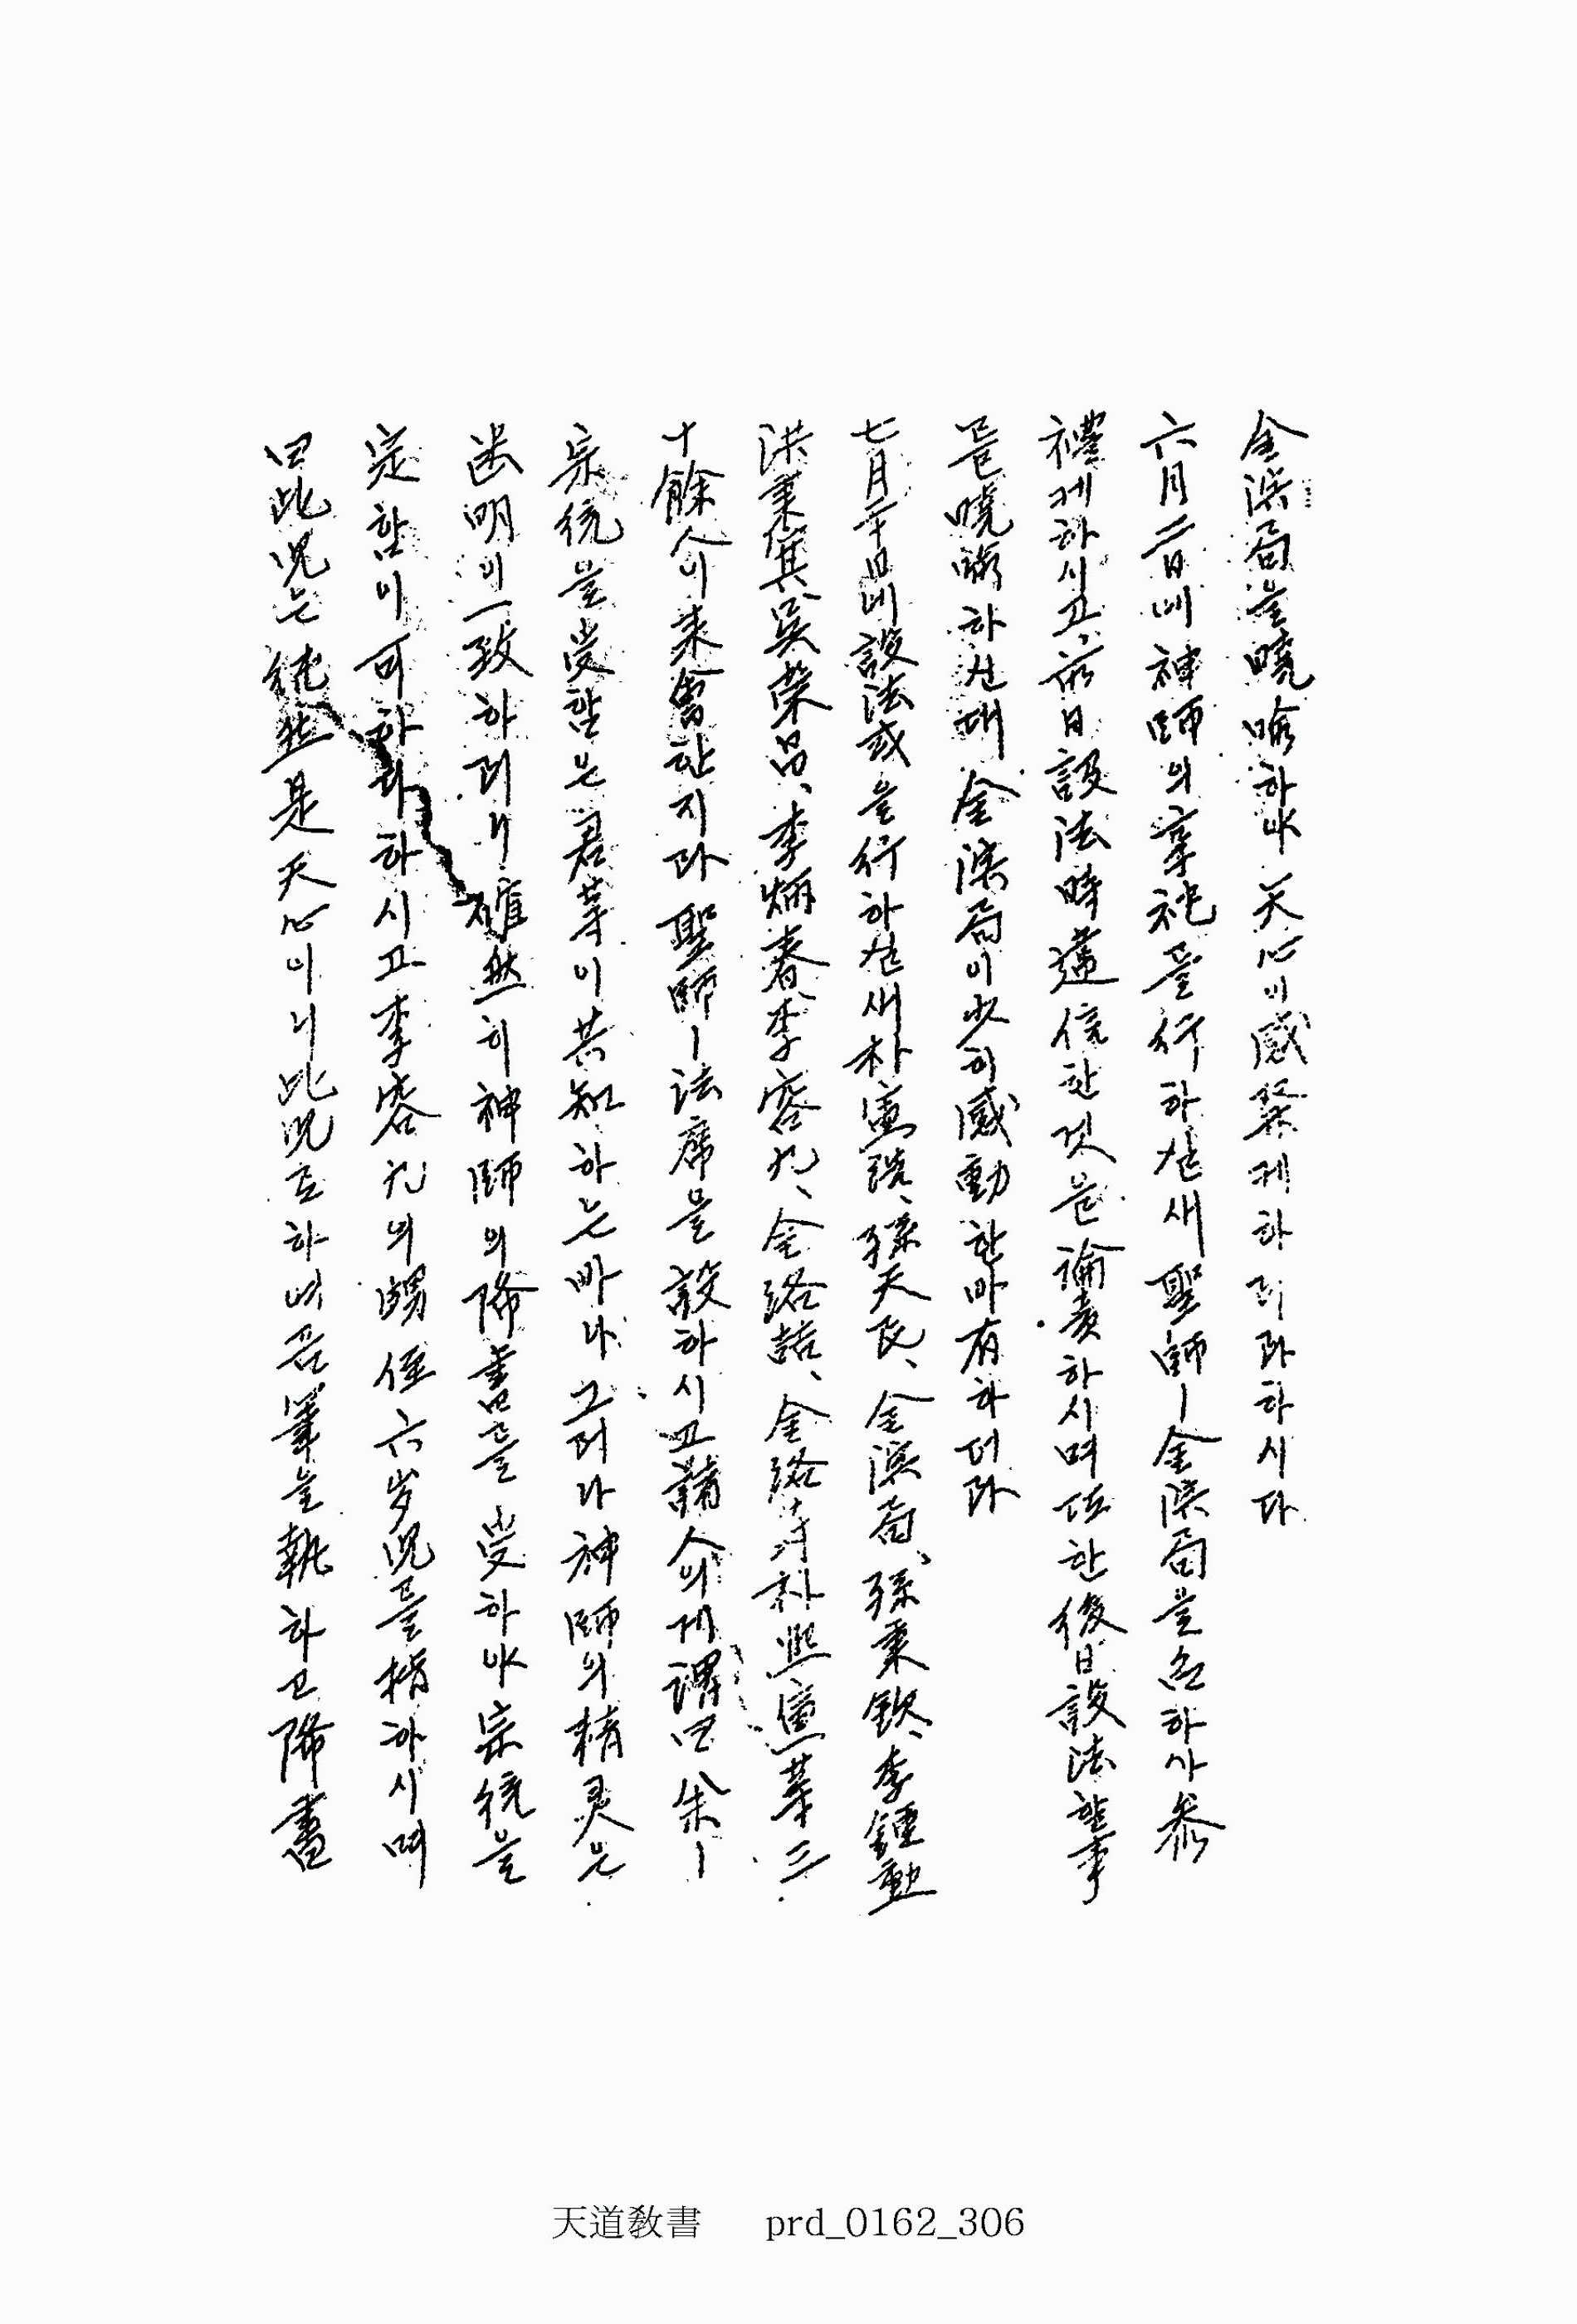 金演局을 曉喩하야 天心이 感發케하리라하시다
六月二日에 神師의 享祀를 行하실새 聖師ㅣ 金演局을 召하사 參
禮케하시고, 前日 設法時 違信한것을 論責하시며 또한 後日 設法할事
로 曉喩하신대 金演局이 少히 感動한바有하더라
七月二十日에 設法式을 行하실새 朴寅浩、孫天民、金演局、孫秉欽、李鍾勳
洪秉箕、吳榮昌、李炳春、李容九、金洛喆、金洛봉 朴熙寅 等 三
十餘人이 來會한지라 聖師ㅣ 法席을 設하시고 諸人의게 謂曰 余ㅣ
宗統을 受함은 君等이 共知하는바나 그러나 神師의 精灵은
幽明이 一致하리니 確然히 神師의 降書를 受하야 宗統을
定함이 可하다하시고 李容九의 甥侄 六岁兒를 指하시며
曰 此兒는 純然是天心이니 此兒로하여금 筆을 執하고 降書
天道敎書 prd_0162_306